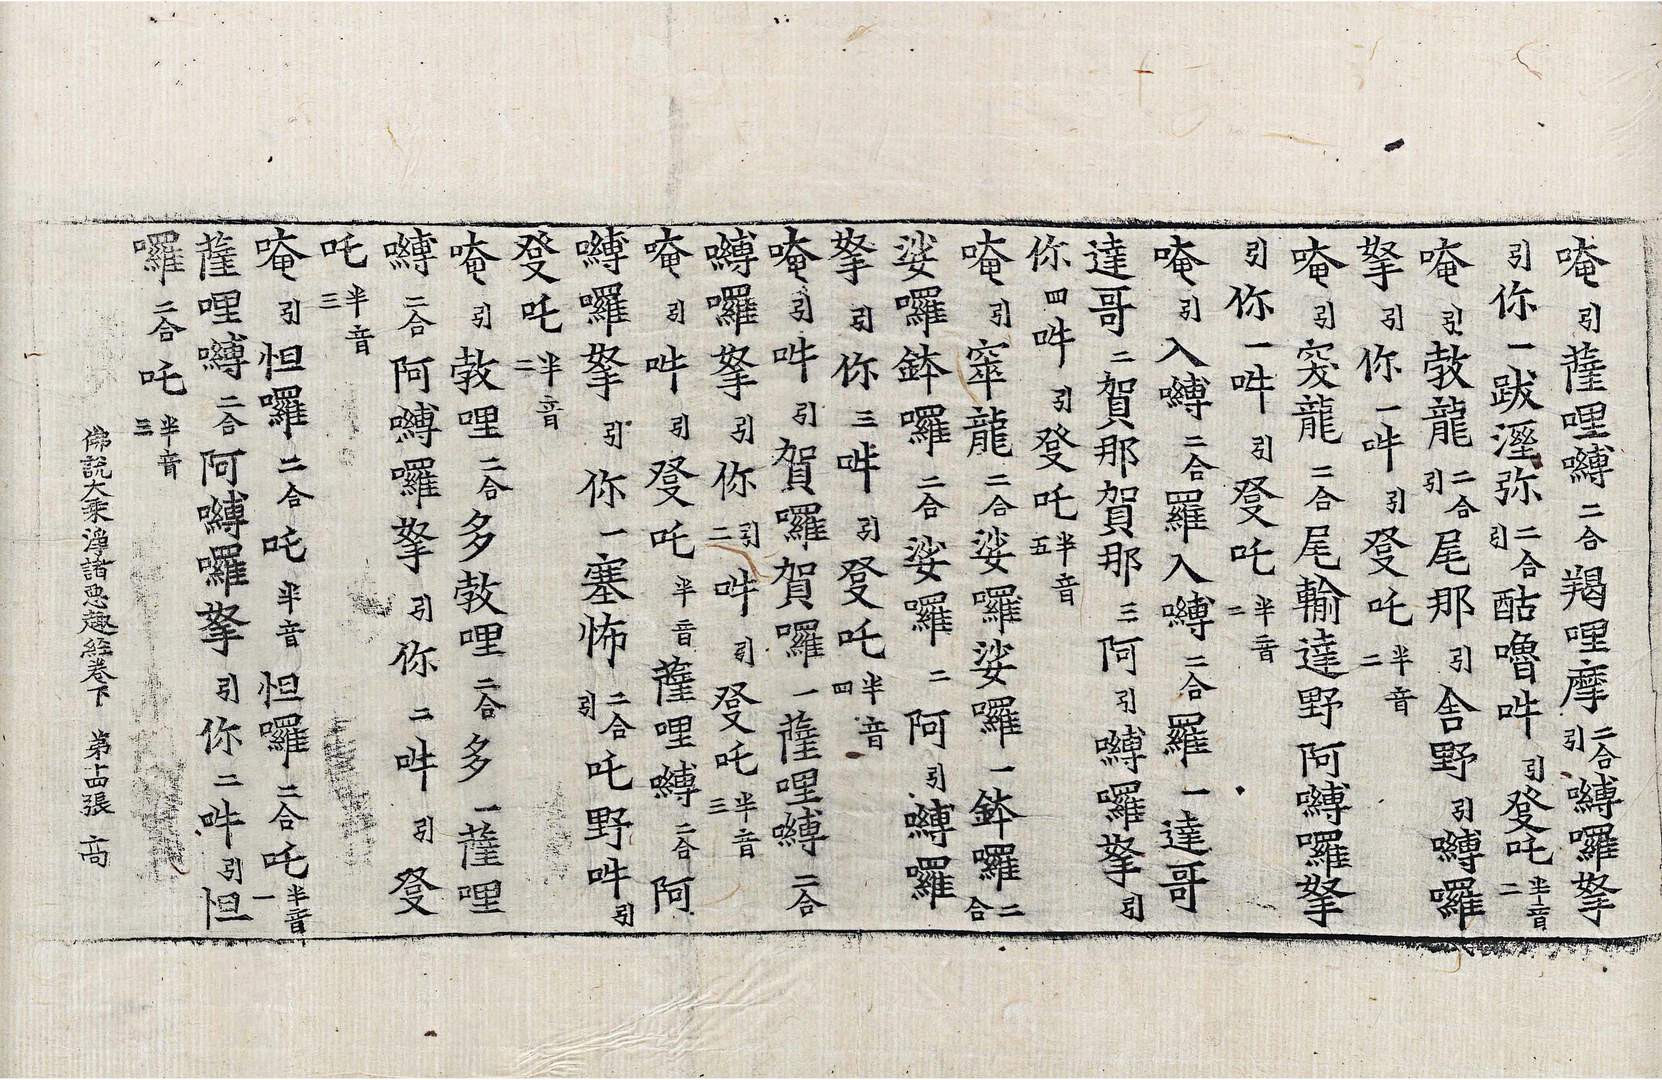 唵引薩哩嚩二合羯哩摩二合引嚩囉拏
引你一跋溼弥二合引酤嚕吽引癹吒半音二
唵引敎龍二合引尾那引舍野引嚩囉
拏引你一吽引癹吒半音二
唵引突龍二合尾輸達野阿嚩囉拏
引你一吽引癹吒半音二
唵引入嚩二合羅入嚩二合羅一達哥
達哥二賀那賀那三阿引嚩囉拏引
你四吽引癹吒半音五
唵引窣龍二合娑囉娑囉一鉢囉二合
娑囉鉢囉二合娑囉二阿引嚩囉
拏引你三吽引癹吒半音四
唵引吽引賀囉賀囉一薩哩嚩二合
嚩囉拏引你引二吽引癹吒半音三
唵引吽引癹吒半音薩哩嚩二合阿
嚩囉拏引你一塞怖二合引吒野吽引
癹吒半音二
唵引敎哩二合多敎哩二合多一薩哩
嚩二合阿嚩囉拏引你二吽引癹
吒半音三
唵引怛囉二合吒半音怛囉二合吒半音一
薩哩嚩二合阿嚩囉拏引你二吽引怛
囉二合吒半音三
佛說大乘淨諸惡趣經卷下 第十四張 高